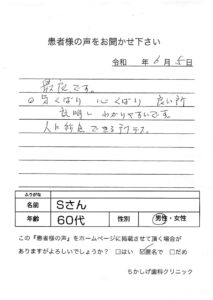 患者様の声をお聞かせ下さい
令和 年 6月 5日
最高です。
気くばり 心くばり 良い所
説明し わかりやすいです。
人に紹介できる
ふりがな
名前 Sさん
年齢 60代 性別 男性・女性
この『患者様の声』をホームページに掲載させて頂く場合が
ありますがよろしいでしょうか? □はい ☑匿名で □だめ
ちかしげ歯科クリニック